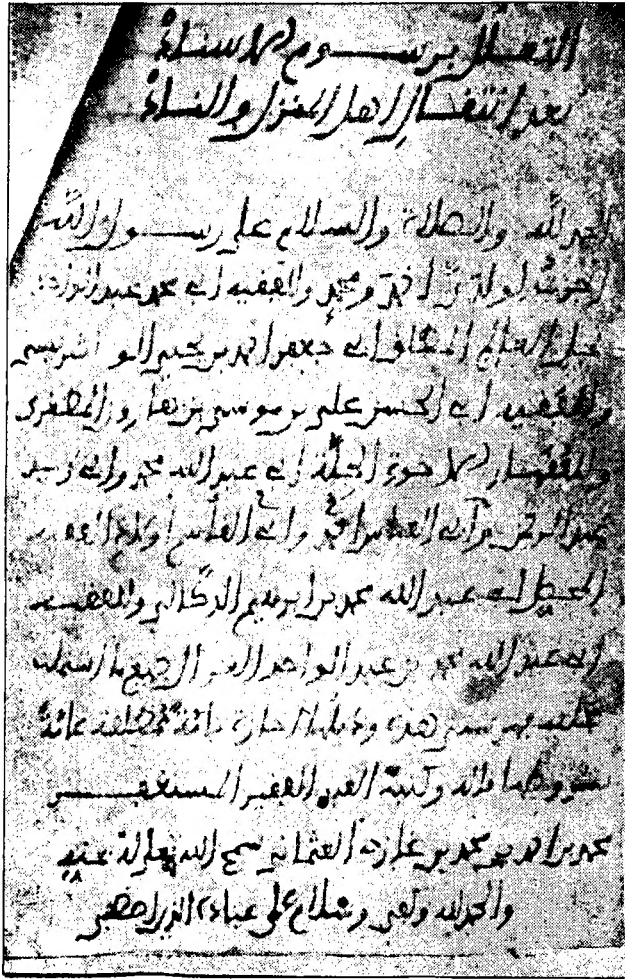 التعلل برسوم الإسناد
بعد انتقال أهل المنزل والناد
الحمد لله والصلاة والسلام على رسول الله
أجزت لولدي أحمد ومحمد والفقيه أبي محمد عبد الواحد
نجل العالم أبي جعفر أحمد بن يحيى الوانشريسي
والفقيه أبي الحسن علي بن موسى بن هارون المطغري
والفقهاء الإخوة الجلة أبي عبد الله محمد وأبي زيد
عبد الرحمن وأبي العباس أحمد وأبي القاسم أولاد الفقيه
أبي عبد الله محمد بن إبراهيم الدكالي والفقيه
أبي عبد الله محمد بن عبد الواحد جميع ما اشتملت
عليه فهرستي هذه إجازة تامة مطلقة عامة
بشروطها وكتبه العبد الفقير المستغفر
محمد بن أحمد بن محمد بن غازي العثماني سمح الله تعالى له بمنه
والحمد لله وكفى وسلام على عباده الذين اصطفى